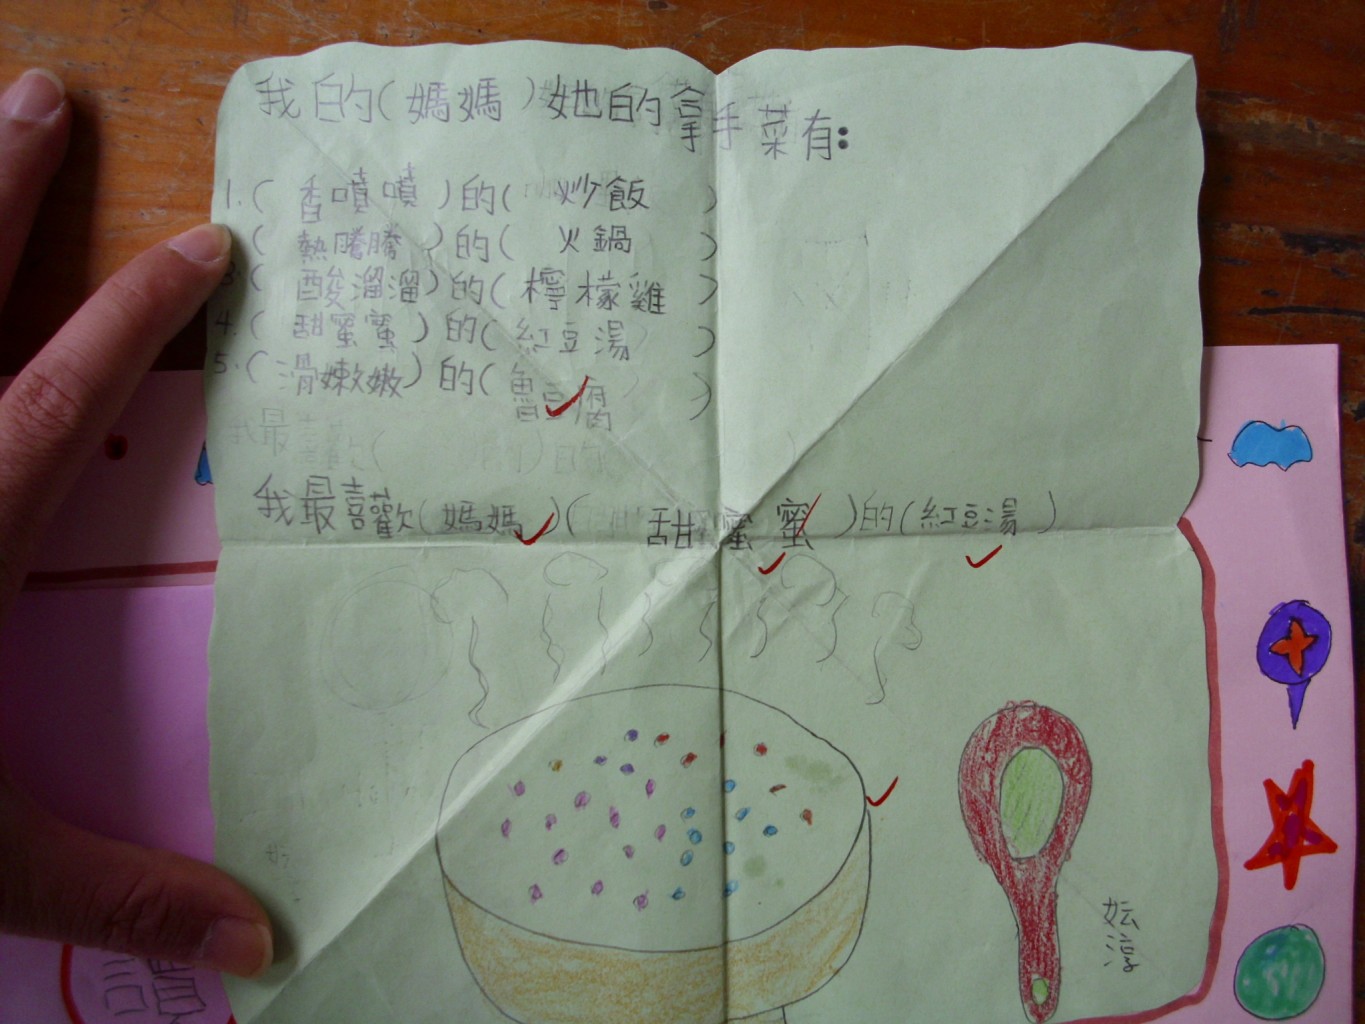 我的(媽媽)她的拿手菜有:
1.(香噴噴)的(炒飯)
(熱騰騰)的(火鍋)
3.(酸溜溜)的(檸檬雞)
4.(甜蜜蜜)的(紅豆湯)
5.(滑嫩嫩)的(魯豆腐)
我最喜歡(媽媽)(甜蜜蜜)的(紅豆湯)
妘淳